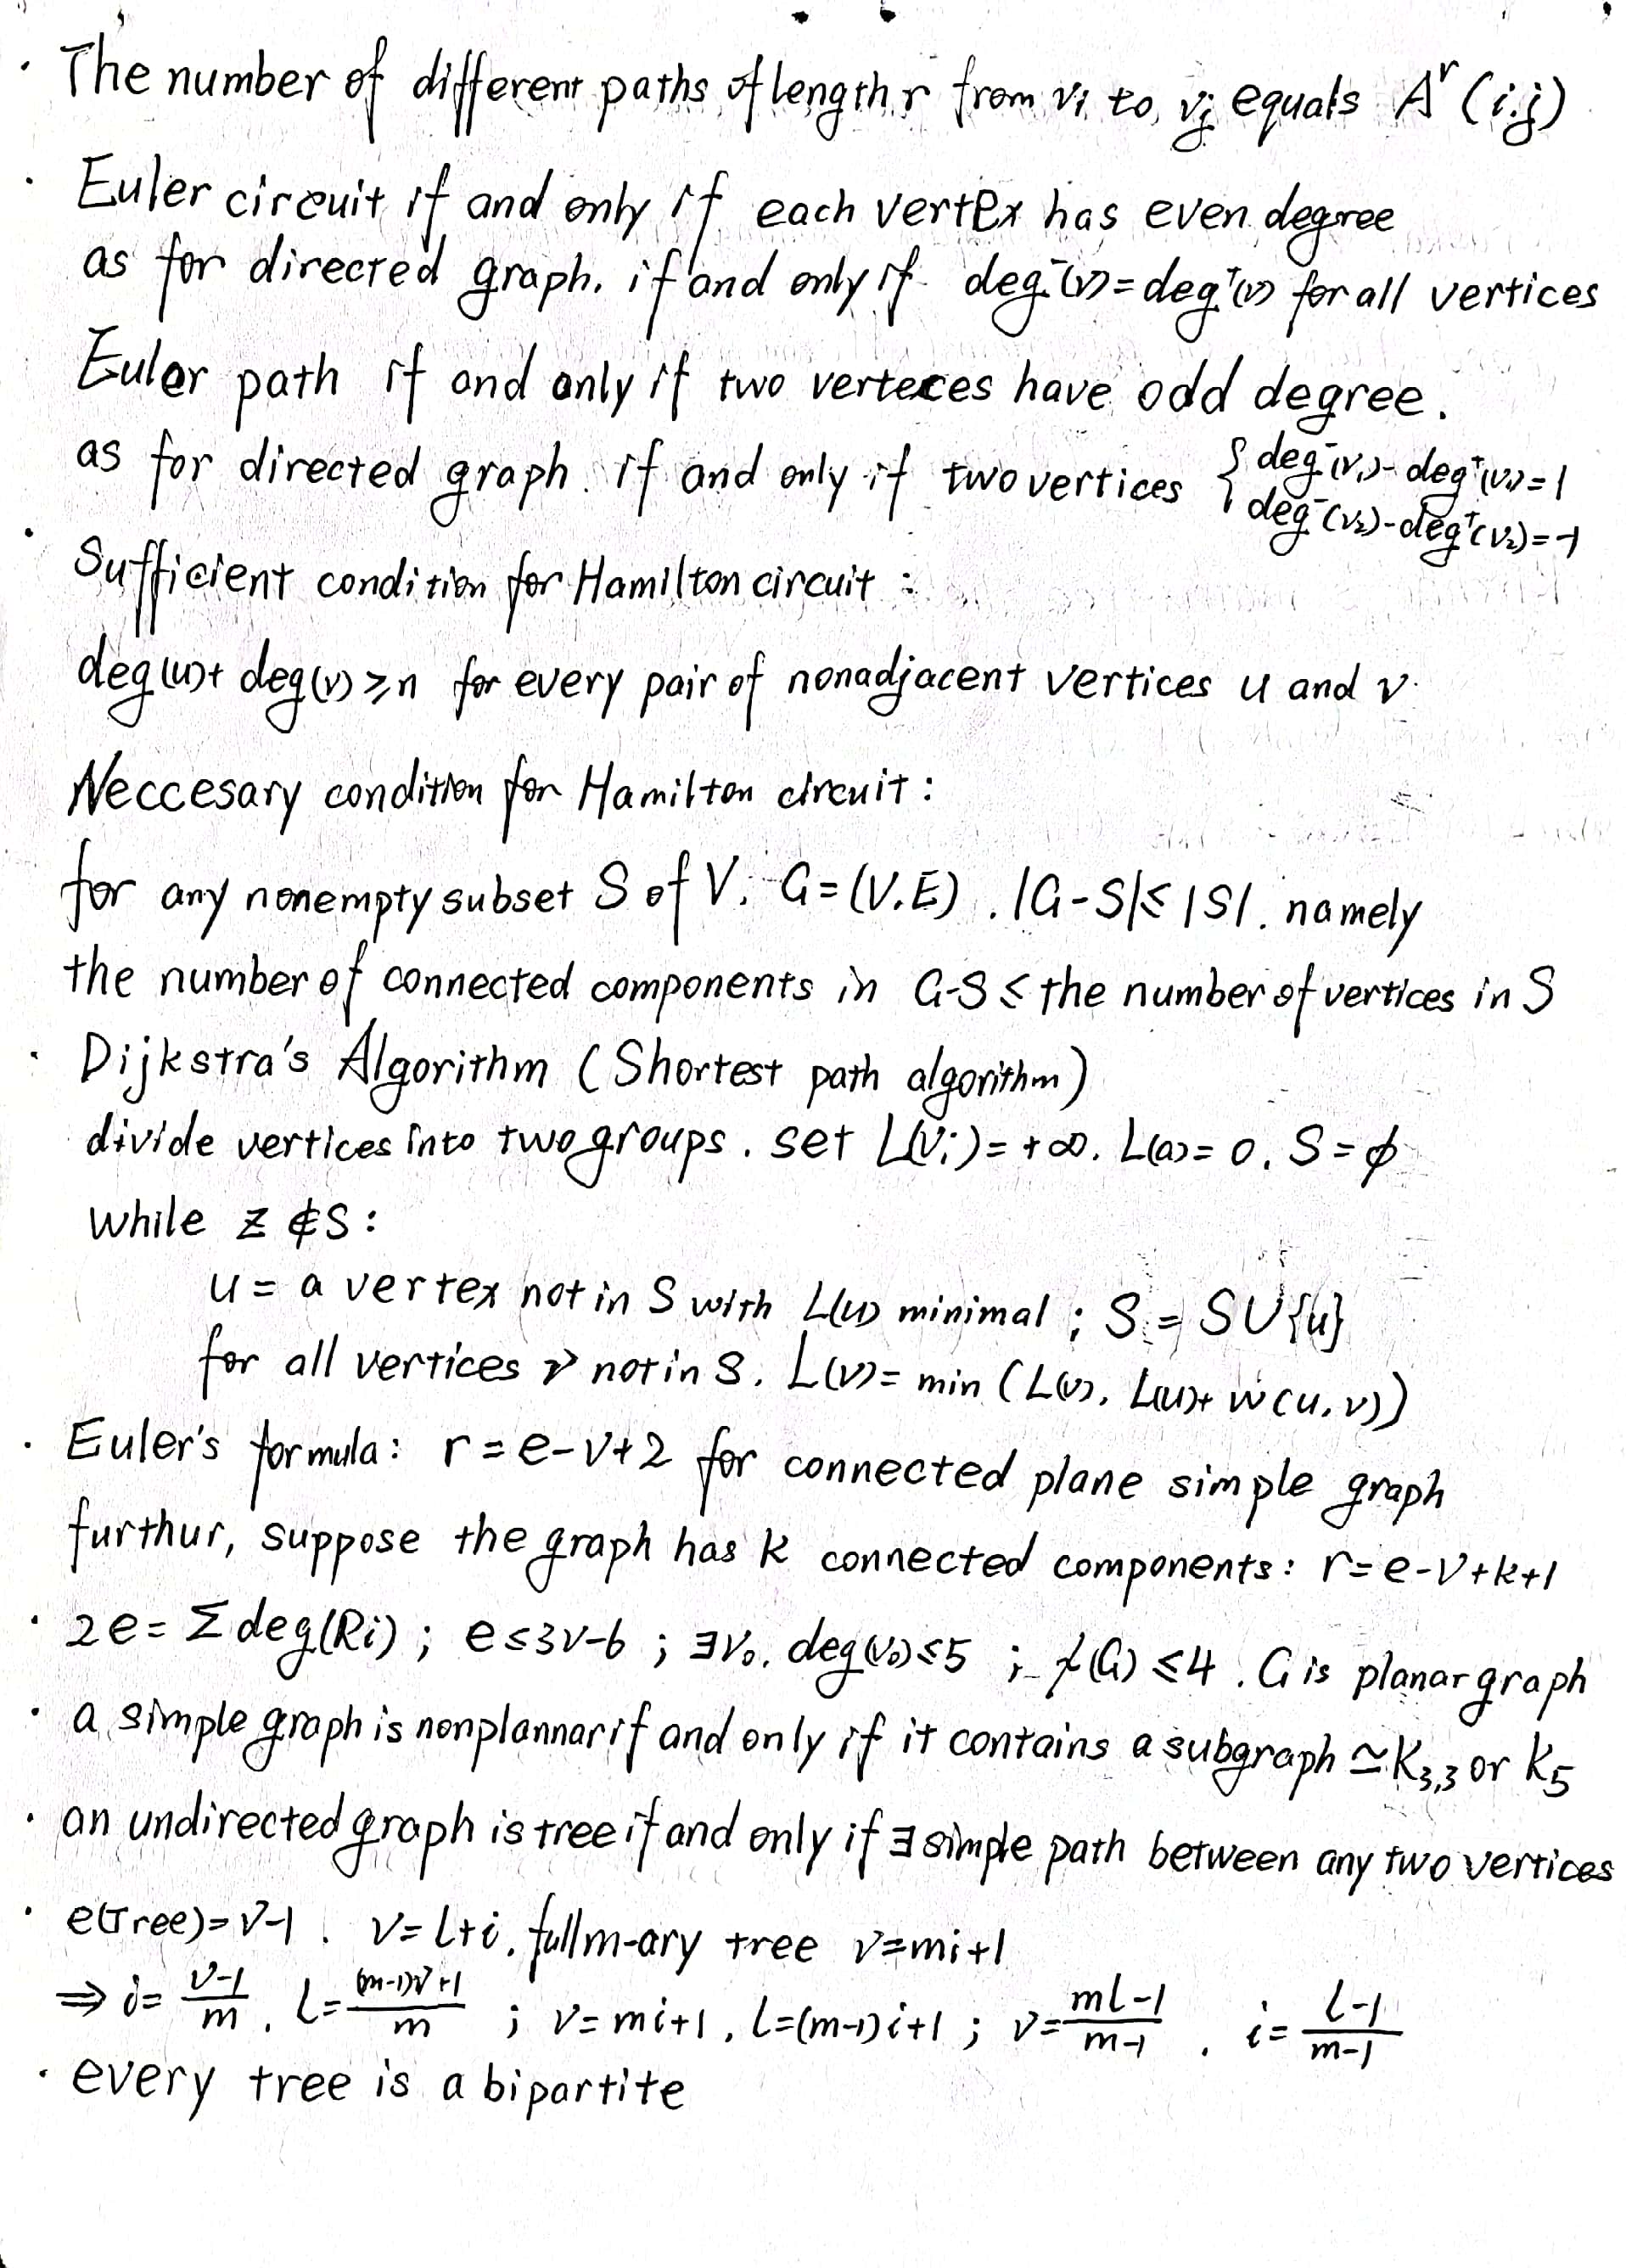 · The number of different paths of length r from vi to vj equals A^r (i.j)
· Euler circuit if and only if each vertex has even degree
as for directed graph. if and only if deg⁻(v)=deg⁺(v) for all vertices
Euler path if and only if two verteces have odd degree.
as for directed graph. if and only if two vertices { deg⁻(v₁)-deg⁺(v₁)=1
deg⁻(v₂)-deg⁺(v₂)=-1
· Sufficient condition for Hamilton circuit :
deg(u)+ deg(v)⩾n for every pair of nonadjacent vertices u and v.
Neccesary condition for Hamilton circuit :
for any nonempty subset S of V. G=(V.E). |G-S|≤|S|. namely
the number of connected components in G-S ≤ the number of vertices in S
· Dijkstra's Algorithm (Shortest path algorithm)
divide vertices into two groups. set L(Vi)=+∞. L(a)=0. S=∅
while z∉S:
u= a vertex not in S with L(u) minimal ; S=S∪{u}
for all vertices v not in S. L(v)= min (L(v), L(u)+ w(u,v))
· Euler's formula: r=e-v+2 for connected plane simple graph
furthur, suppose the graph has k connected components: r=e-v+k+1
· 2e=Σdeg(Ri) ; e≤3v-6 ; ∃v₀. deg(v₀)≤5 ; χ(G)≤4. G is planar graph
· a simple graph is nonplannar if and only if it contains a subgraph ≃K₃,₃ or K₅
· an undirected graph is tree if and only if ∃simple path between any two vertices
· e(Tree)=v-1. v=l+i. full m-ary tree v=mi+1
⇒ i=(v-1)/m. l=((m-1)v+1)/m ; v=mi+1, l=(m-1)i+1 ; v=(ml-1)/(m-1). i=(l-1)/(m-1)
· every tree is a bipartite